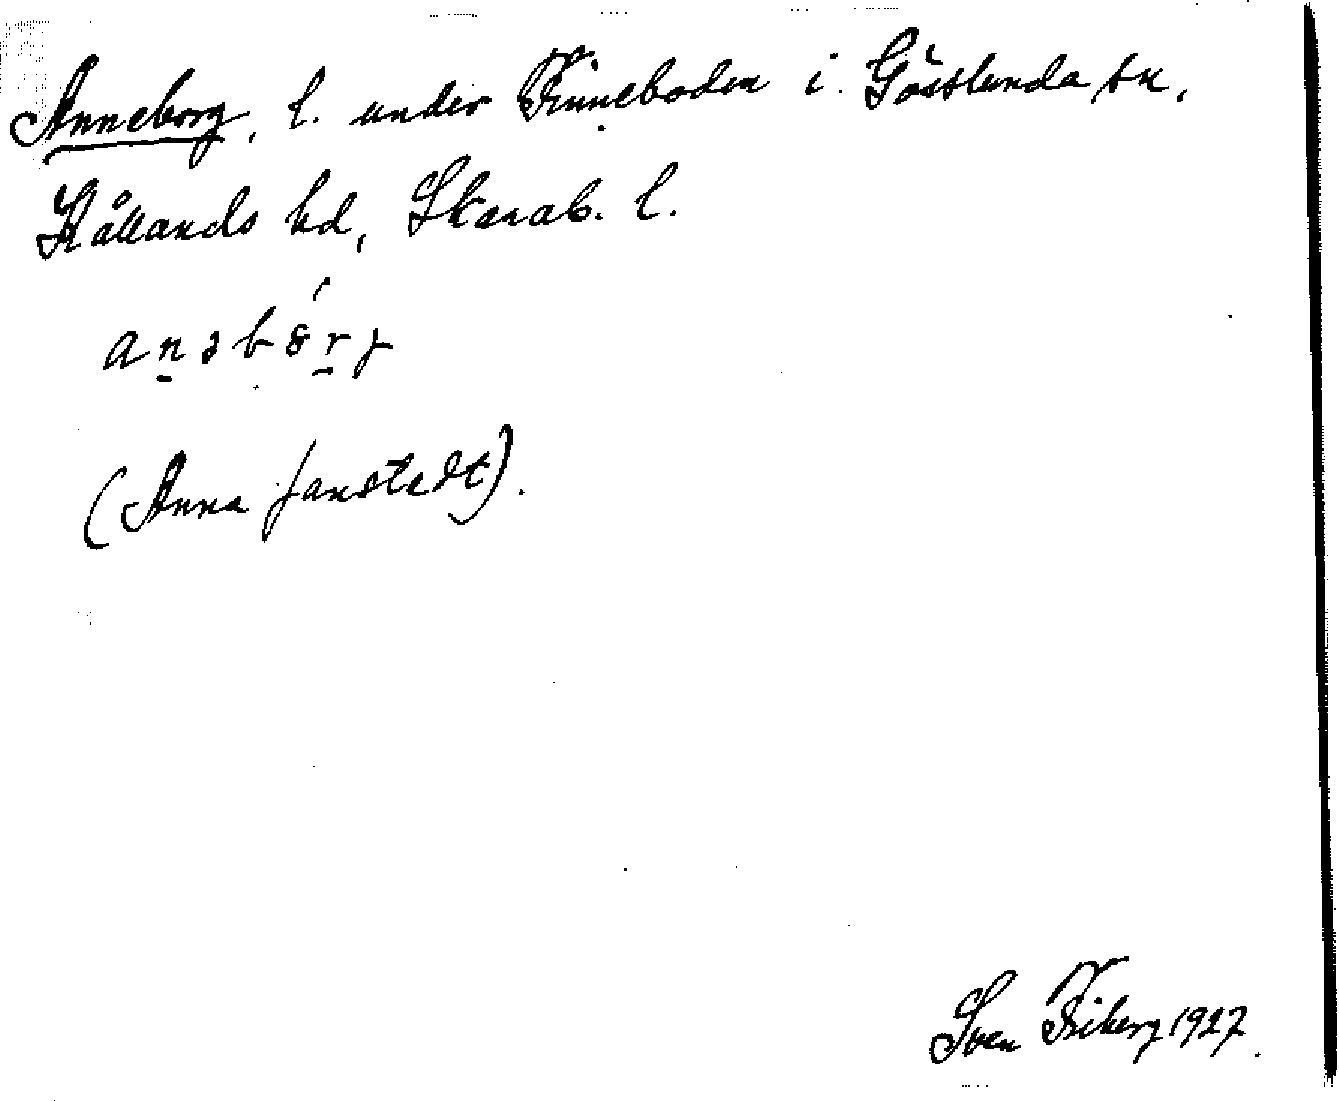 Anneborg, l. under Finneboden i Gösslunda sn,
Kållands hd, Skarab. l.
anəbórj
(Anna Janstedt).
Sven Friberg 1927.